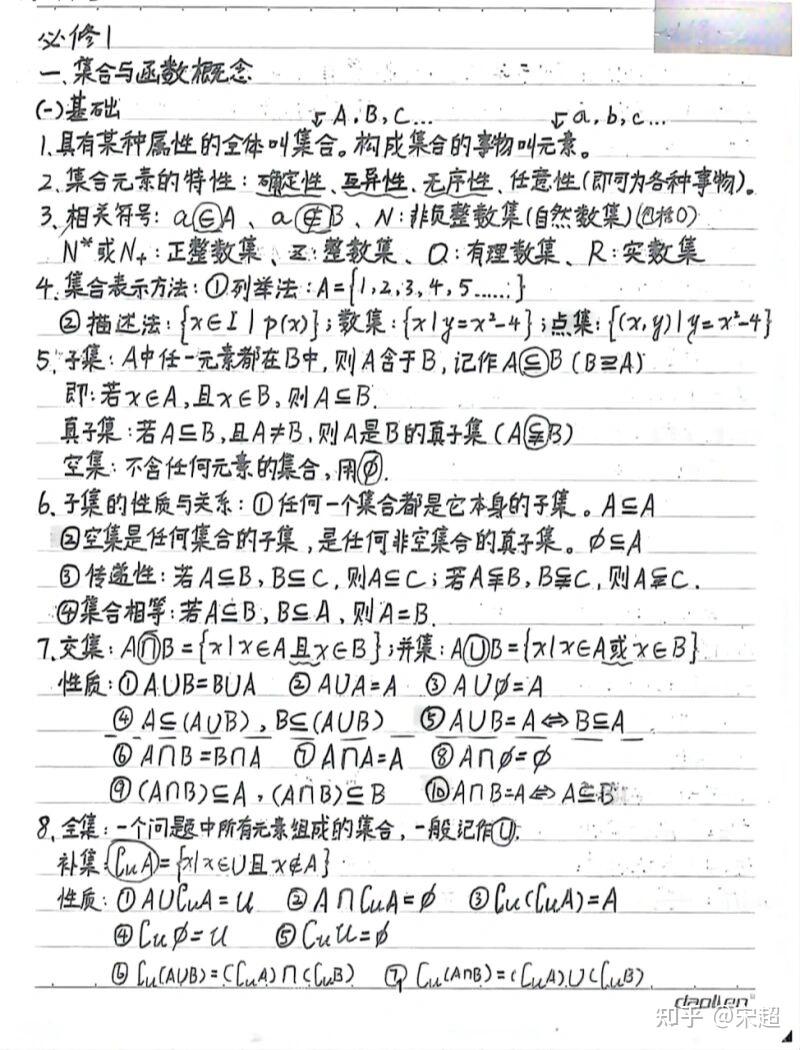 必修1
一、集合与函数概念
(一)基础
A, B, C... a, b, c...
1.具有某种属性的全体叫集合。构成集合的事物叫元素。
2.集合元素的特性：确定性、互异性、无序性、任意性(即可为各种事物)。
3.相关符号：a∈A、a∉B、N：非负整数集(自然数集)(包括0)
N*或N+：正整数集、Z：整数集、Q：有理数集、R：实数集
4.集合表示方法：①列举法：A={1,2,3,4,5......}
②描述法：{x∈I|p(x)}；数集：{x|y=x²-4}；点集：{(x,y)|y=x²-4}
5.子集：A中任一元素都在B中，则A含于B，记作A⊆B(B⊇A)
即：若x∈A,且x∈B,则A⊆B.
真子集：若A⊆B,且A≠B,则A是B的真子集(A⫋B)
空集：不含任何元素的集合，用∅.
6.子集的性质与关系：①任何一个集合都是它本身的子集。A⊆A
②空集是任何集合的子集，是任何非空集合的真子集。∅⊆A
③传递性：若A⊆B,B⊆C,则A⊆C；若A⫋B,B⫋C,则A⫋C.
④集合相等：若A⊆B,B⊆A,则A=B.
7.交集：A∩B={x|x∈A且x∈B}；并集：A∪B={x|x∈A或x∈B}
性质：①A∪B=B∪A ②A∪A=A ③A∪∅=A
④A⊆(A∪B),B⊆(A∪B) ⑤A∪B=A⇔B⊆A
⑥A∩B=B∩A ⑦A∩A=A ⑧A∩∅=∅
⑨(A∩B)⊆A,(A∩B)⊆B ⑩A∩B=A⇔A⊆B
8.全集：一个问题中所有元素组成的集合，一般记作U.
补集:∁uA={x|x∈U且x∉A}
性质：①A∪∁uA=U ②A∩∁uA=∅ ③∁u(∁uA)=A
④∁u∅=U ⑤∁uU=∅
⑥∁u(A∪B)=(∁uA)∩(∁uB) ⑦∁u(A∩B)=(∁uA)∪(∁uB)
知乎 @宋超